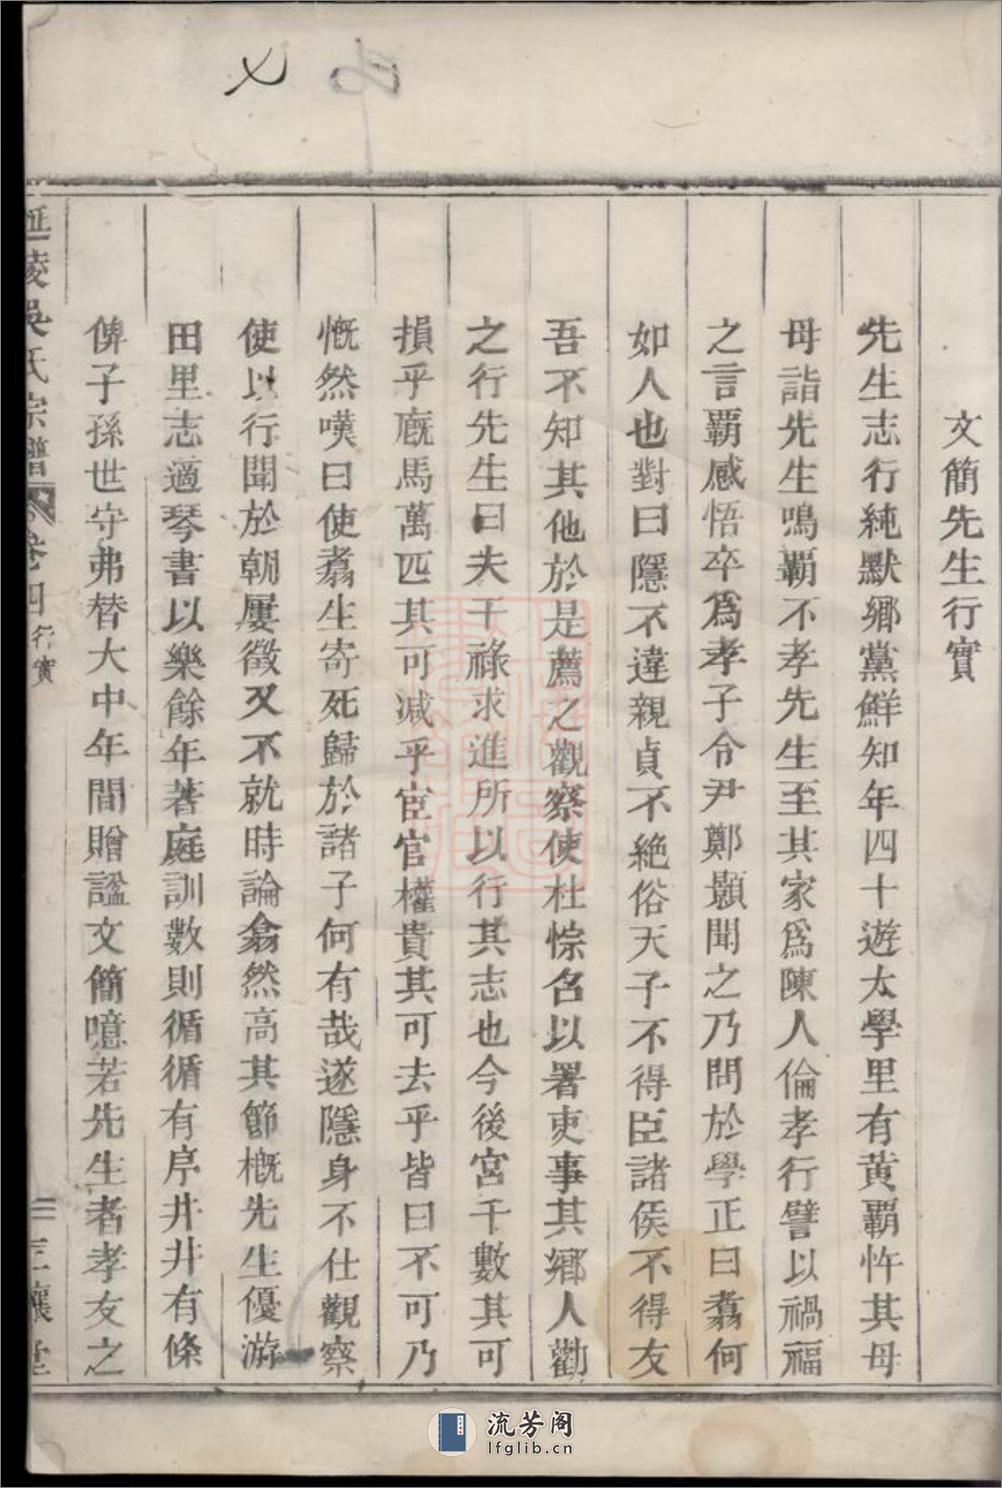 文簡先生行實
先生志行純默鄉黨鮮知年四十遊太學里有黃覇忤其母
母詣先生鳴覇不孝先生至其家爲陳人倫孝行譬以禍福
之言覇感悟卒爲孝子令尹鄭顥聞之乃問於學正曰翥何
如人也對曰隱不違親貞不絶俗天子不得臣諸侯不得友
吾不知其他於是薦之觀察使杜悰名以署吏事其鄉人勸
之行先生曰夫干祿求進所以行其志也今後宮千數其可
損乎廐馬萬匹其可減乎宦官權貴其可去乎皆曰不可乃
慨然嘆曰使翥生寄死歸於諸子何有哉遂隱身不仕觀察
使以行聞於朝屢徵又不就時論翕然高其節概先生優游
田里志適琴書以樂餘年著庭訓數則循循有序井井有條
俾子孫世守弗替大中年間贈謚文簡噫若先生者孝友之
延陵吳氏宗譜 卷四 行實 三 三讓堂
流芳阁
lfglib.cn